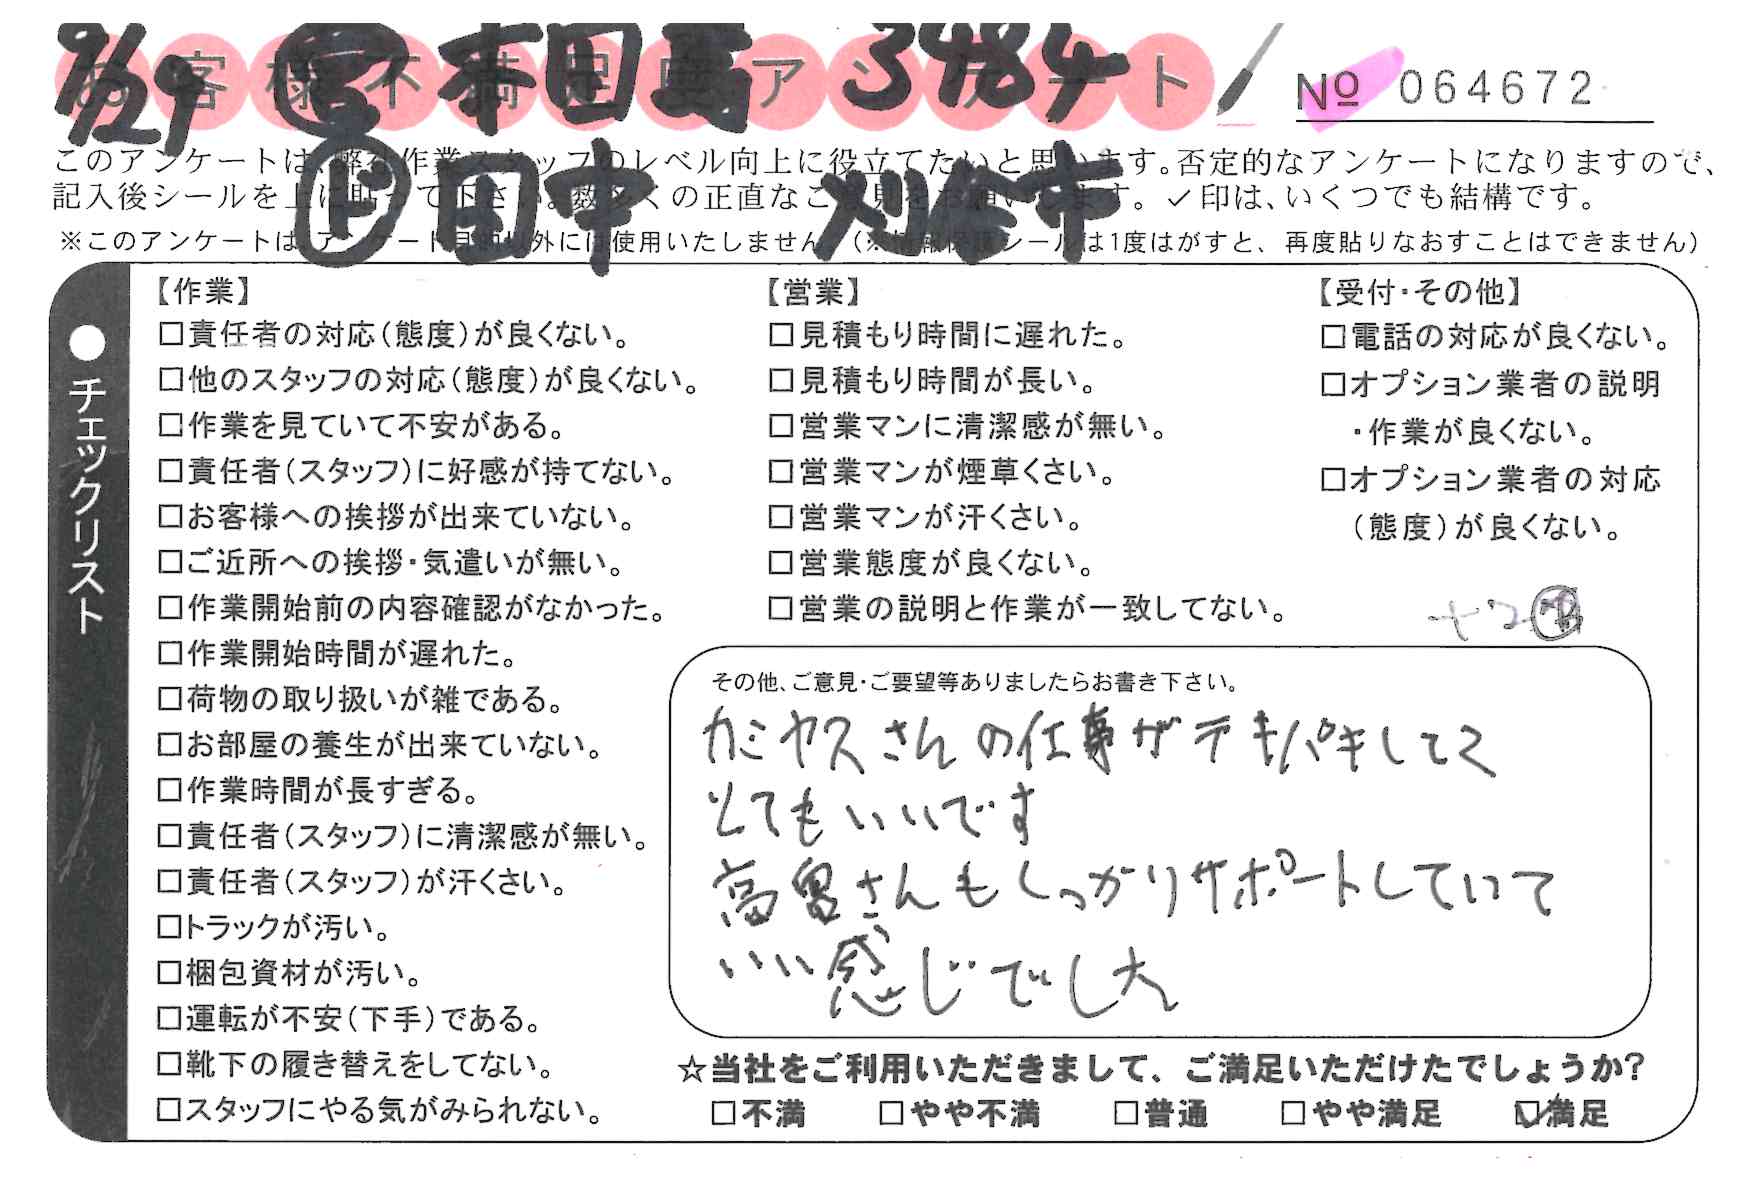 お客様不満足度アンケート
9/29 営 本田高 3484
No 064672
このアンケートは、弊社作業スタッフのレベル向上に役立てたいと思います。否定的なアンケートになりますので、
記入後シールを上に貼って下さい。数多くの正直なご意見をお願いします。✓印は、いくつでも結構です。
ド 田中 刈谷市
※このアンケートは、アンケート目的以外には使用いたしません。(※情報保護シールは1度はがすと、再度貼りなおすことはできません)
●チェックリスト
【作業】
□責任者の対応(態度)が良くない。
□他のスタッフの対応(態度)が良くない。
□作業を見ていて不安がある。
□責任者(スタッフ)に好感が持てない。
□お客様への挨拶が出来ていない。
□ご近所への挨拶・気遣いが無い。
□作業開始前の内容確認がなかった。
□作業開始時間が遅れた。
□荷物の取り扱いが雑である。
□お部屋の養生が出来ていない。
□作業時間が長すぎる。
□責任者(スタッフ)に清潔感が無い。
□責任者(スタッフ)が汗くさい。
□トラックが汚い。
□梱包資材が汚い。
□運転が不安(下手)である。
□靴下の履き替えをしてない。
□スタッフにやる気がみられない。
【営業】
□見積もり時間に遅れた。
□見積もり時間が長い。
□営業マンに清潔感が無い。
□営業マンが煙草くさい。
□営業マンが汗くさい。
□営業態度が良くない。
□営業の説明と作業が一致してない。
【受付・その他】
□電話の対応が良くない。
□オプション業者の説明
・作業が良くない。
□オプション業者の対応
(態度)が良くない。
その他、ご意見・ご要望等ありましたらお書き下さい。
カミヤスさんの仕事がテキパキしてて
とてもいいです
高畠さんもしっかりサポートしていて
いい感じでした
☆当社をご利用いただきまして、ご満足いただけたでしょうか?
□不満 □やや不満 □普通 □やや満足 ☑満足